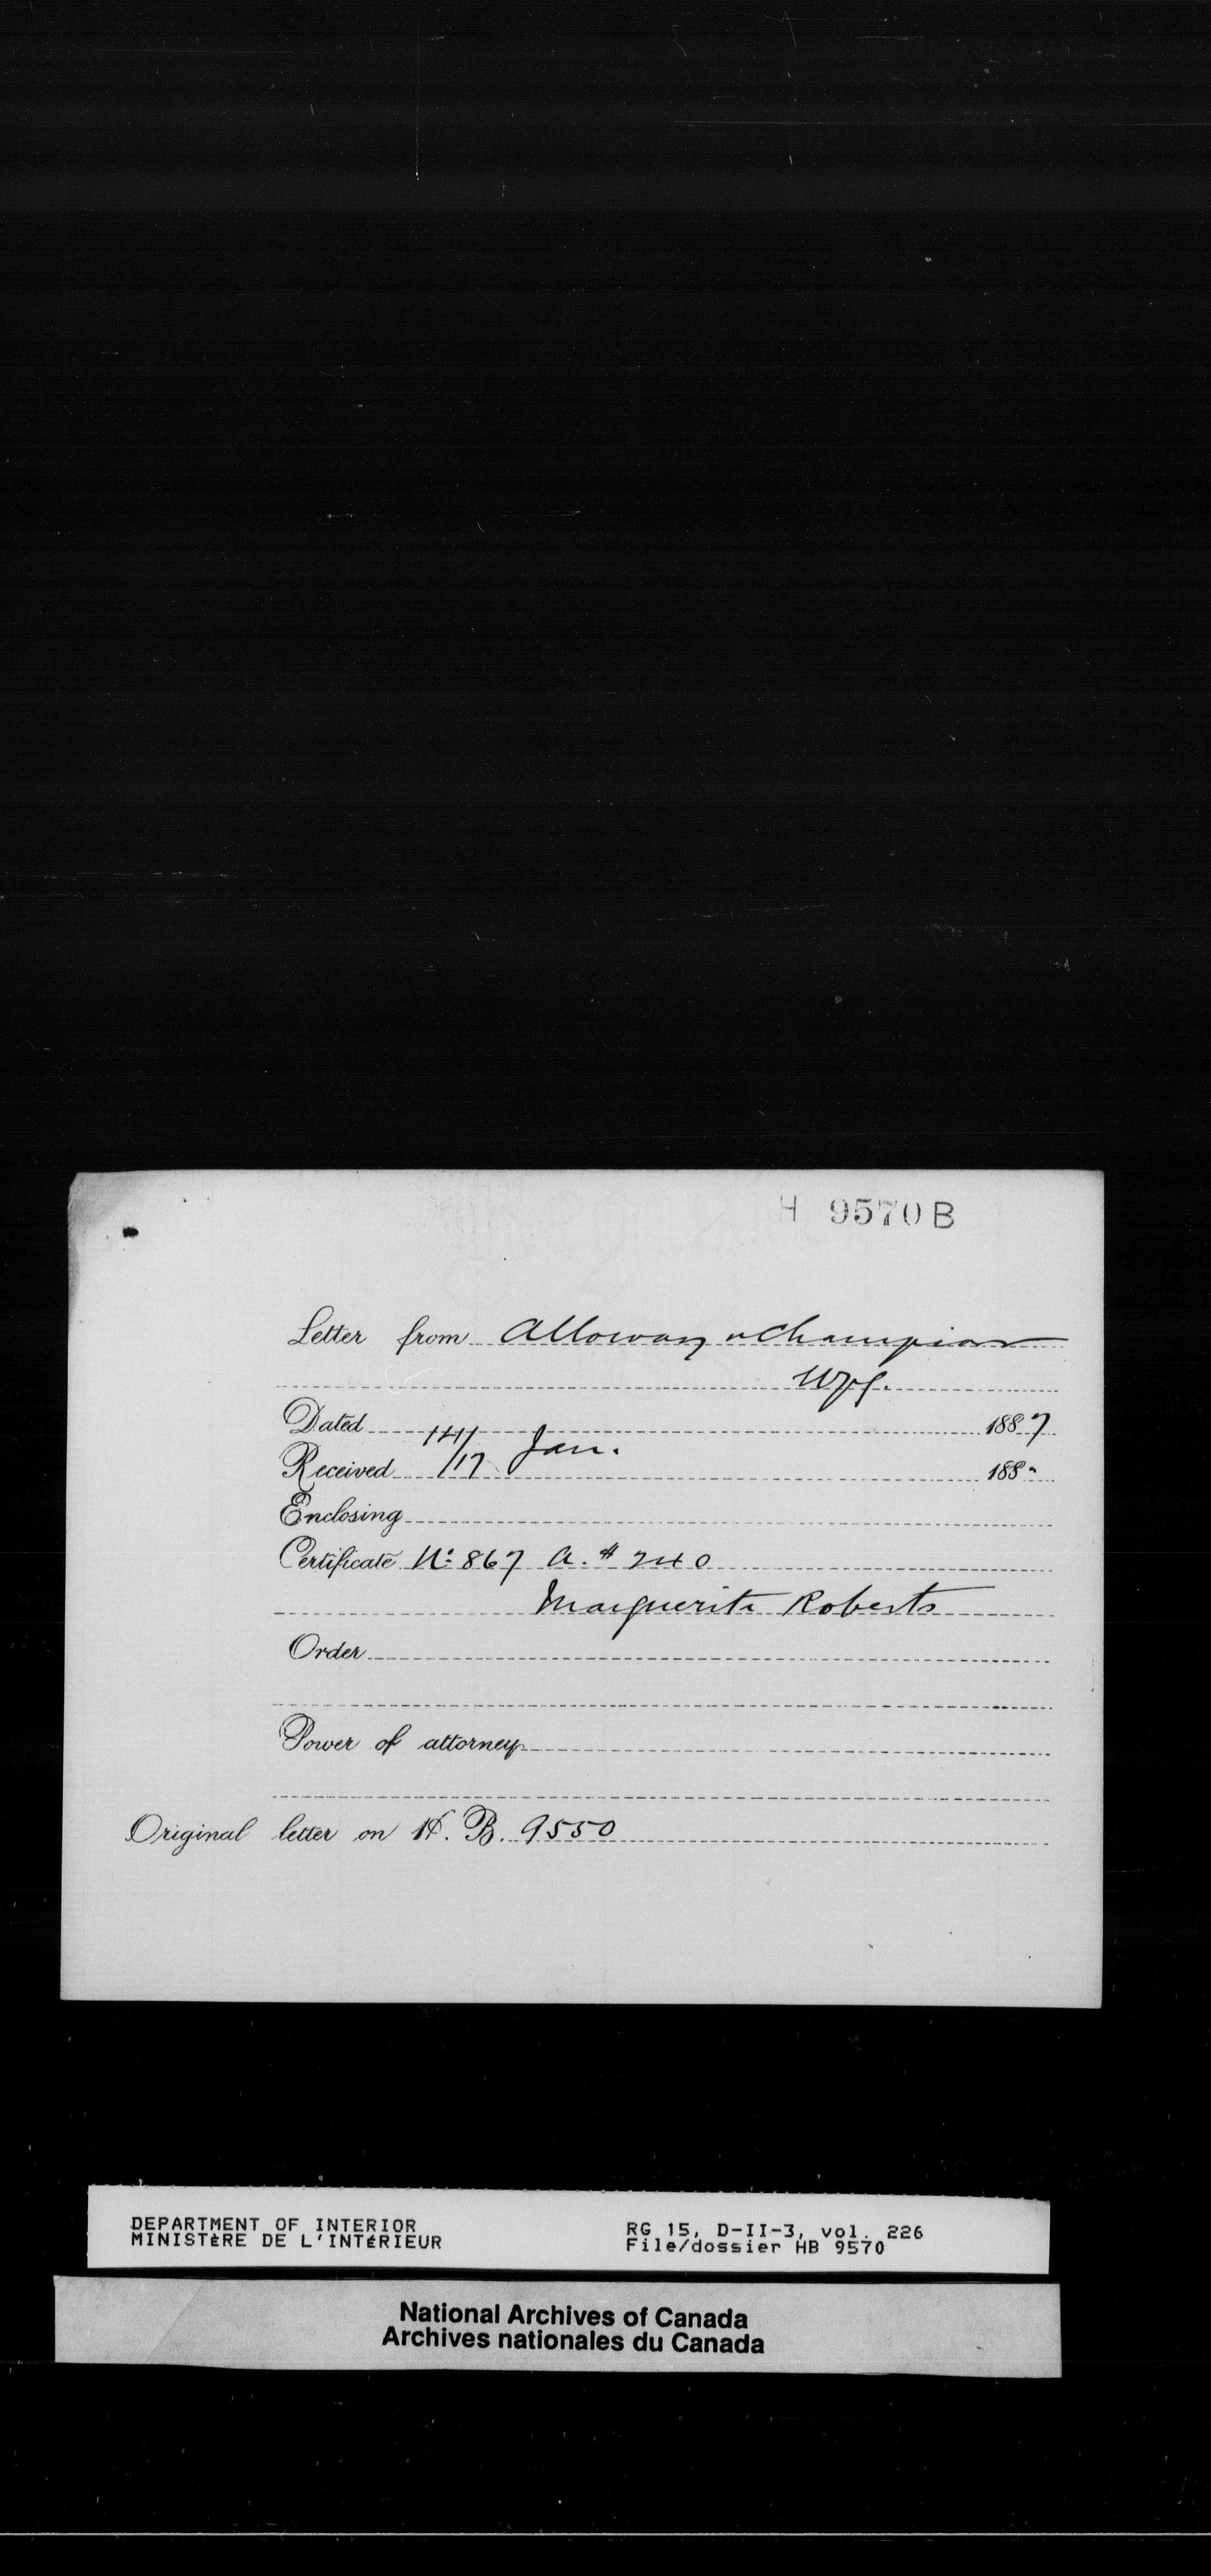 H 9570 B
Letter from Alloway & Champion
Wpg.
Dated 14/ Jan. 1887
Received /17 188"
Enclosing
Certificate No 867 A. $240
Marguerite Roberts
Order
Power of attorney
Original letter on H. B. 9550
DEPARTMENT OF INTERIOR
MINISTÈRE DE L'INTÉRIEUR
RG 15, D-II-3, vol. 226
File/dossier HB 9570
National Archives of Canada
Archives nationales du Canada